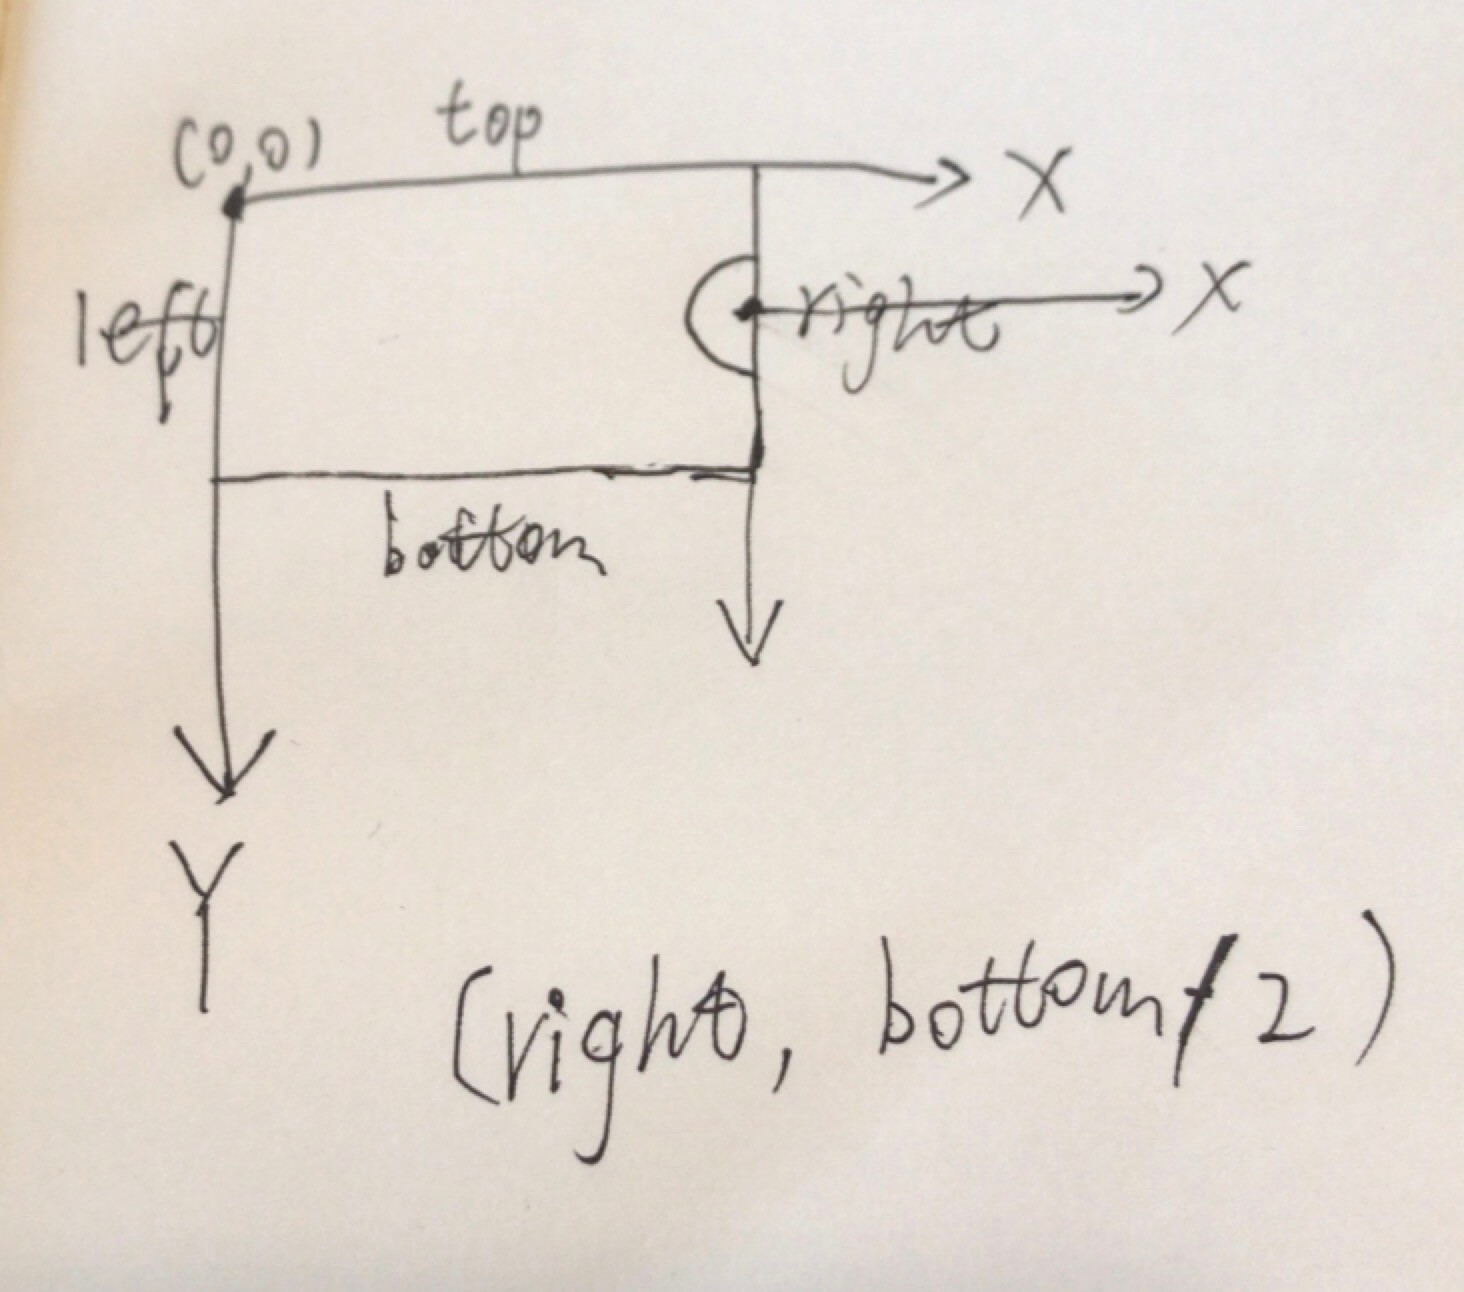 (0,0)
top
X
left
right
X
bottom
Y
(right, bottom/2)